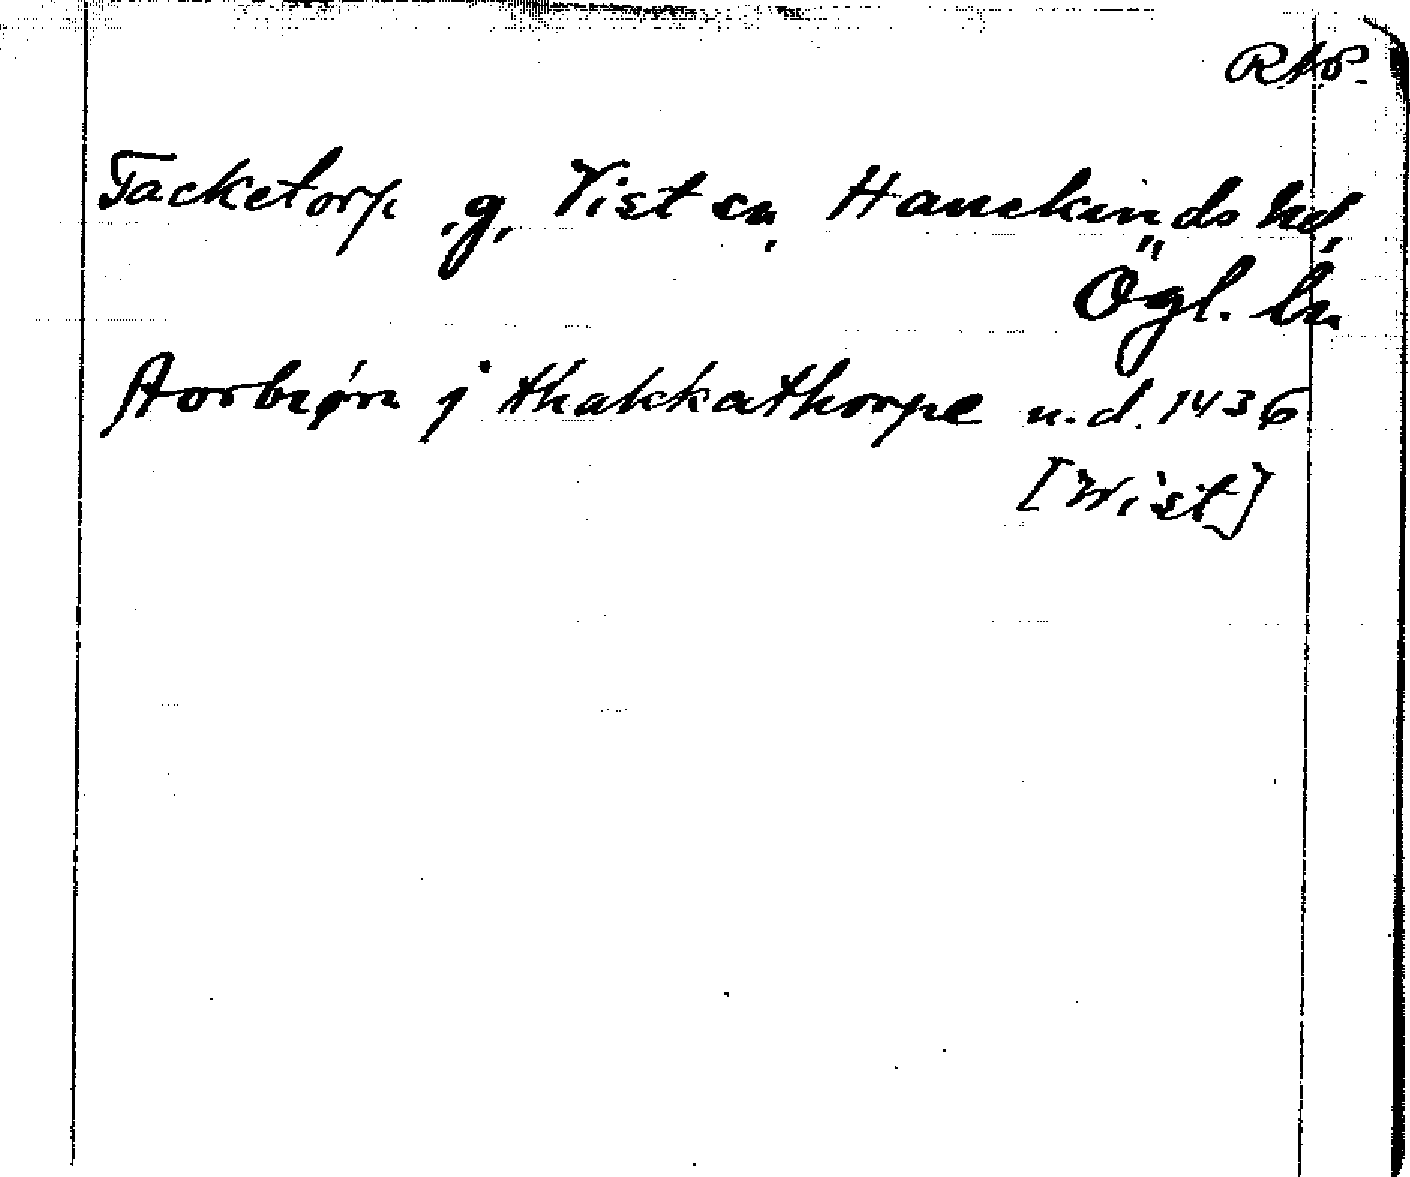 RAP.
Tacketorp, g, Vist sn, Hanekinds hd,
Ögl. ln
Aorbiørn j thakkathorpe u.d. 1436
[Wist]